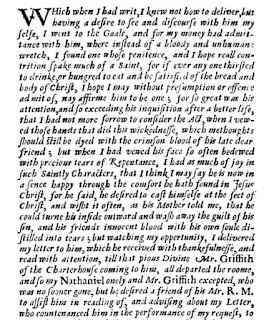 WHich when I had writ, I knew not how to deliver, but
having a desire to see and discourse with him my
selfe, I went to the Goale, and for my money had admit-
tance with him, where instead of a bloody and unhumane
wretch, I found one whose penitence, and I hope reall con-
trition speake much of a Saint, for if ever any one thirsted
to drinke, or hungred to eat and be satisfied of the bread and
body of Christ, I hope I may without presumption or offence
admit of, may affirme him to be one; for so great was his
attention, and so exceeding his inquisition after a better life,
that I had not more sorrow to consider the Act, when I view-
ed those hands that did this wickednesse, which methoughts
should still be dyed with the crimson blood of his late dear
friend; but when I had vewed his face so often bedewed
with precious tears of Repentance, I had as much of joy in
such Saintly Characters, that I think I may say he is now in
a sence happy through the comfort he hath found in Jesus
Christ, for he said, he desired to cast himselfe at the feet of
Christ, and wisht it often, as his Mother told me, that he
could turne his inside outward and wash away the guilt of his
sin, and his friends innocent blood with his own soule di-
stilled into tears; but watching my opportunity, I delivered
my letter to him, which he received with thankefulnesse, and
read with attention, till that pious Divine Mr. Griffith
of the Charterhouse coming to him, all departed the roome,
and so my Nathaniel onely and Mr. Griffith excepted, who
was no sooner gone, but he desired a friend of his Mr. R. M.
to assist him in reading of, and advising about my Letter,
who countenanced him in the performance of my request, to